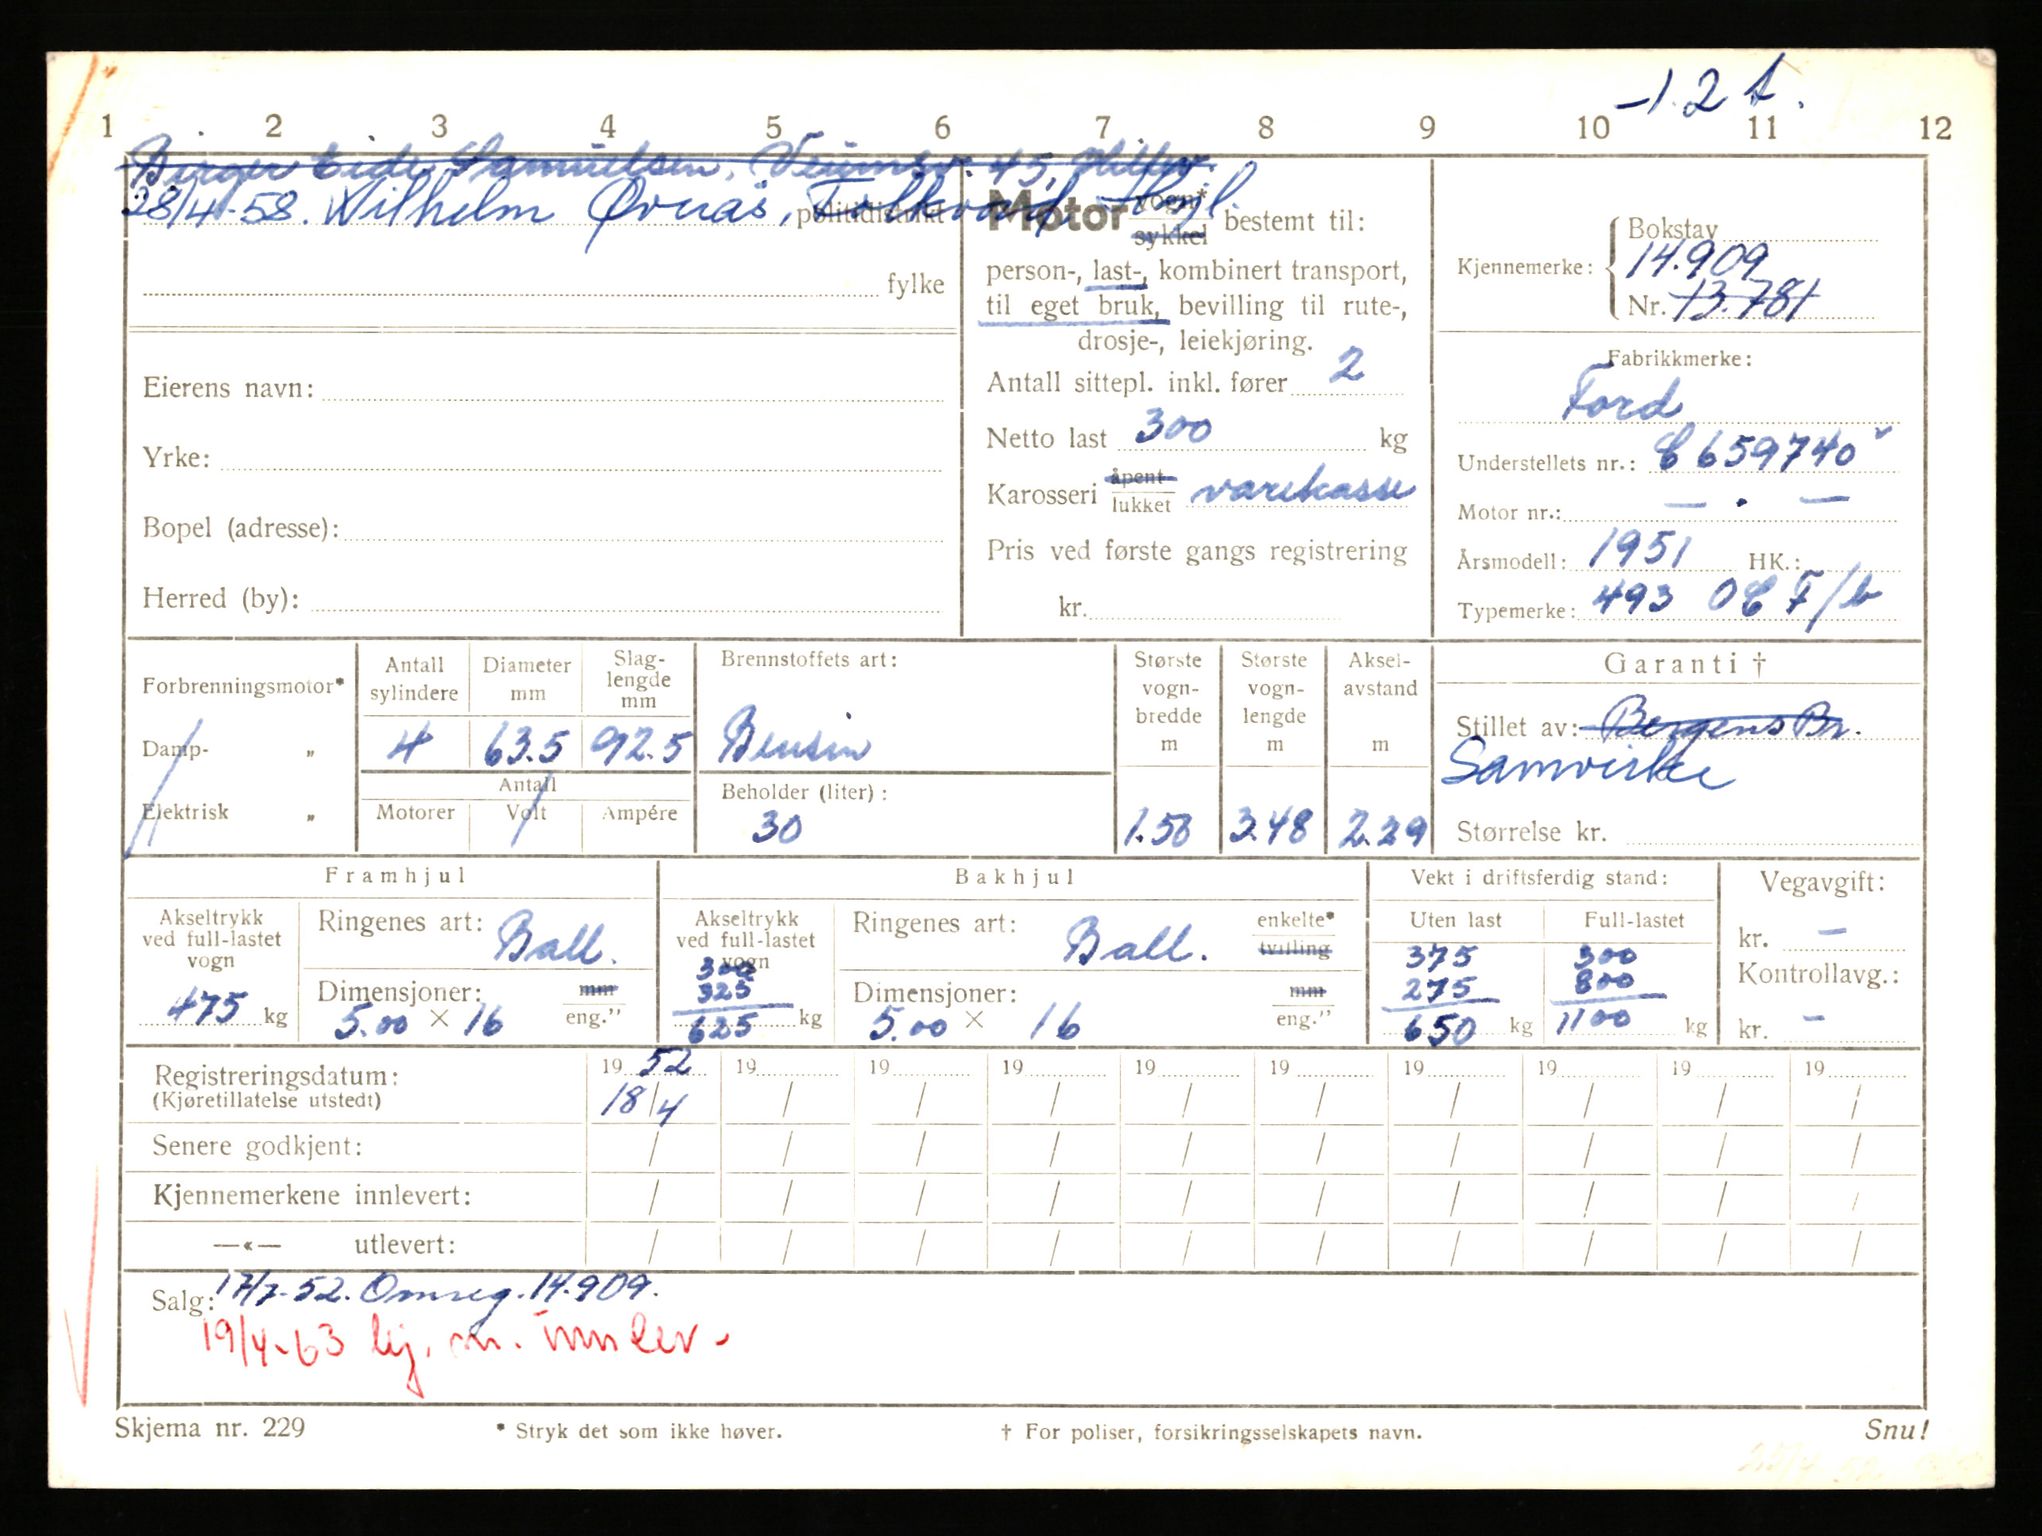 -1.2 t.
1 2 3 4 5 6 7 8 9 10 11 12
Birger Eide Samuelsen, 45,
28/4-58. Wilhelm Øvrås, Folkvord, Høyl.
politidistrikt
fylke
Eierens navn:
Yrke:
Bopel (adresse):
Herred (by):
Motor vogn* sykkel bestemt til:
person-, last-, kombinert transport,
til eget bruk, bevilling til rute-,
drosje-, leiekjøring.
Antall sittepl. inkl. fører 2
Netto last 300 kg
Karosseri åpent lukket varekasse
Pris ved første gangs registrering
kr.
Bokstav
14.909
Kjennemerke:
Nr. 13.781
Fabrikkmerke:
Ford
Understellets nr.: C 659740
Motor nr.: — . —
Årsmodell: 1951 HK.:
Typemerke: 493 OCF/b
Forbrenningsmotor*
Damp- „
Elektrisk „
Antall sylindere
4
Diameter mm
63.5
Slag-lengde mm
92.5
Antall
Motorer Volt Ampére
Brennstoffets art:
Bensin
Beholder (liter):
30
Største vogn-bredde m
1.50
Største vogn-lengde m
3.48
Aksel-avstand m
2.29
Garanti †
Stillet av: Bergens Br.
Samvirke
Størrelse kr.
Framhjul
Akseltrykk ved full-lastet vogn
475 kg
Ringenes art: Ball.
Dimensjoner: mm
5.00 × 16 eng.”
Bakhjul
Akseltrykk ved full-lastet vogn
300
325
625 kg
Ringenes art: Ball. enkelte* tvilling
Dimensjoner: mm
5.00 × 16 eng.”
Vekt i driftsferdig stand:
Uten last
375
275
650 kg
Full-lastet
300
800
1100 kg
Vegavgift:
kr. —
Kontrollavg.:
kr. —
Registreringsdatum: 19 52 19 19 19 19 19 19 19 19 19
(Kjøretillatelse utstedt) 18/4 / / / / / / / / /
Senere godkjent: / / / / / / / / / /
Kjennemerkene innlevert: / / / / / / / / / /
—«— utlevert: / / / / / / / / / /
Salg: 17/7-52. Omreg. 14.909.
19/4-63 kj. m. innlev.
Skjema nr. 229
* Stryk det som ikke høver.
† For poliser, forsikringsselskapets navn.
Snu!